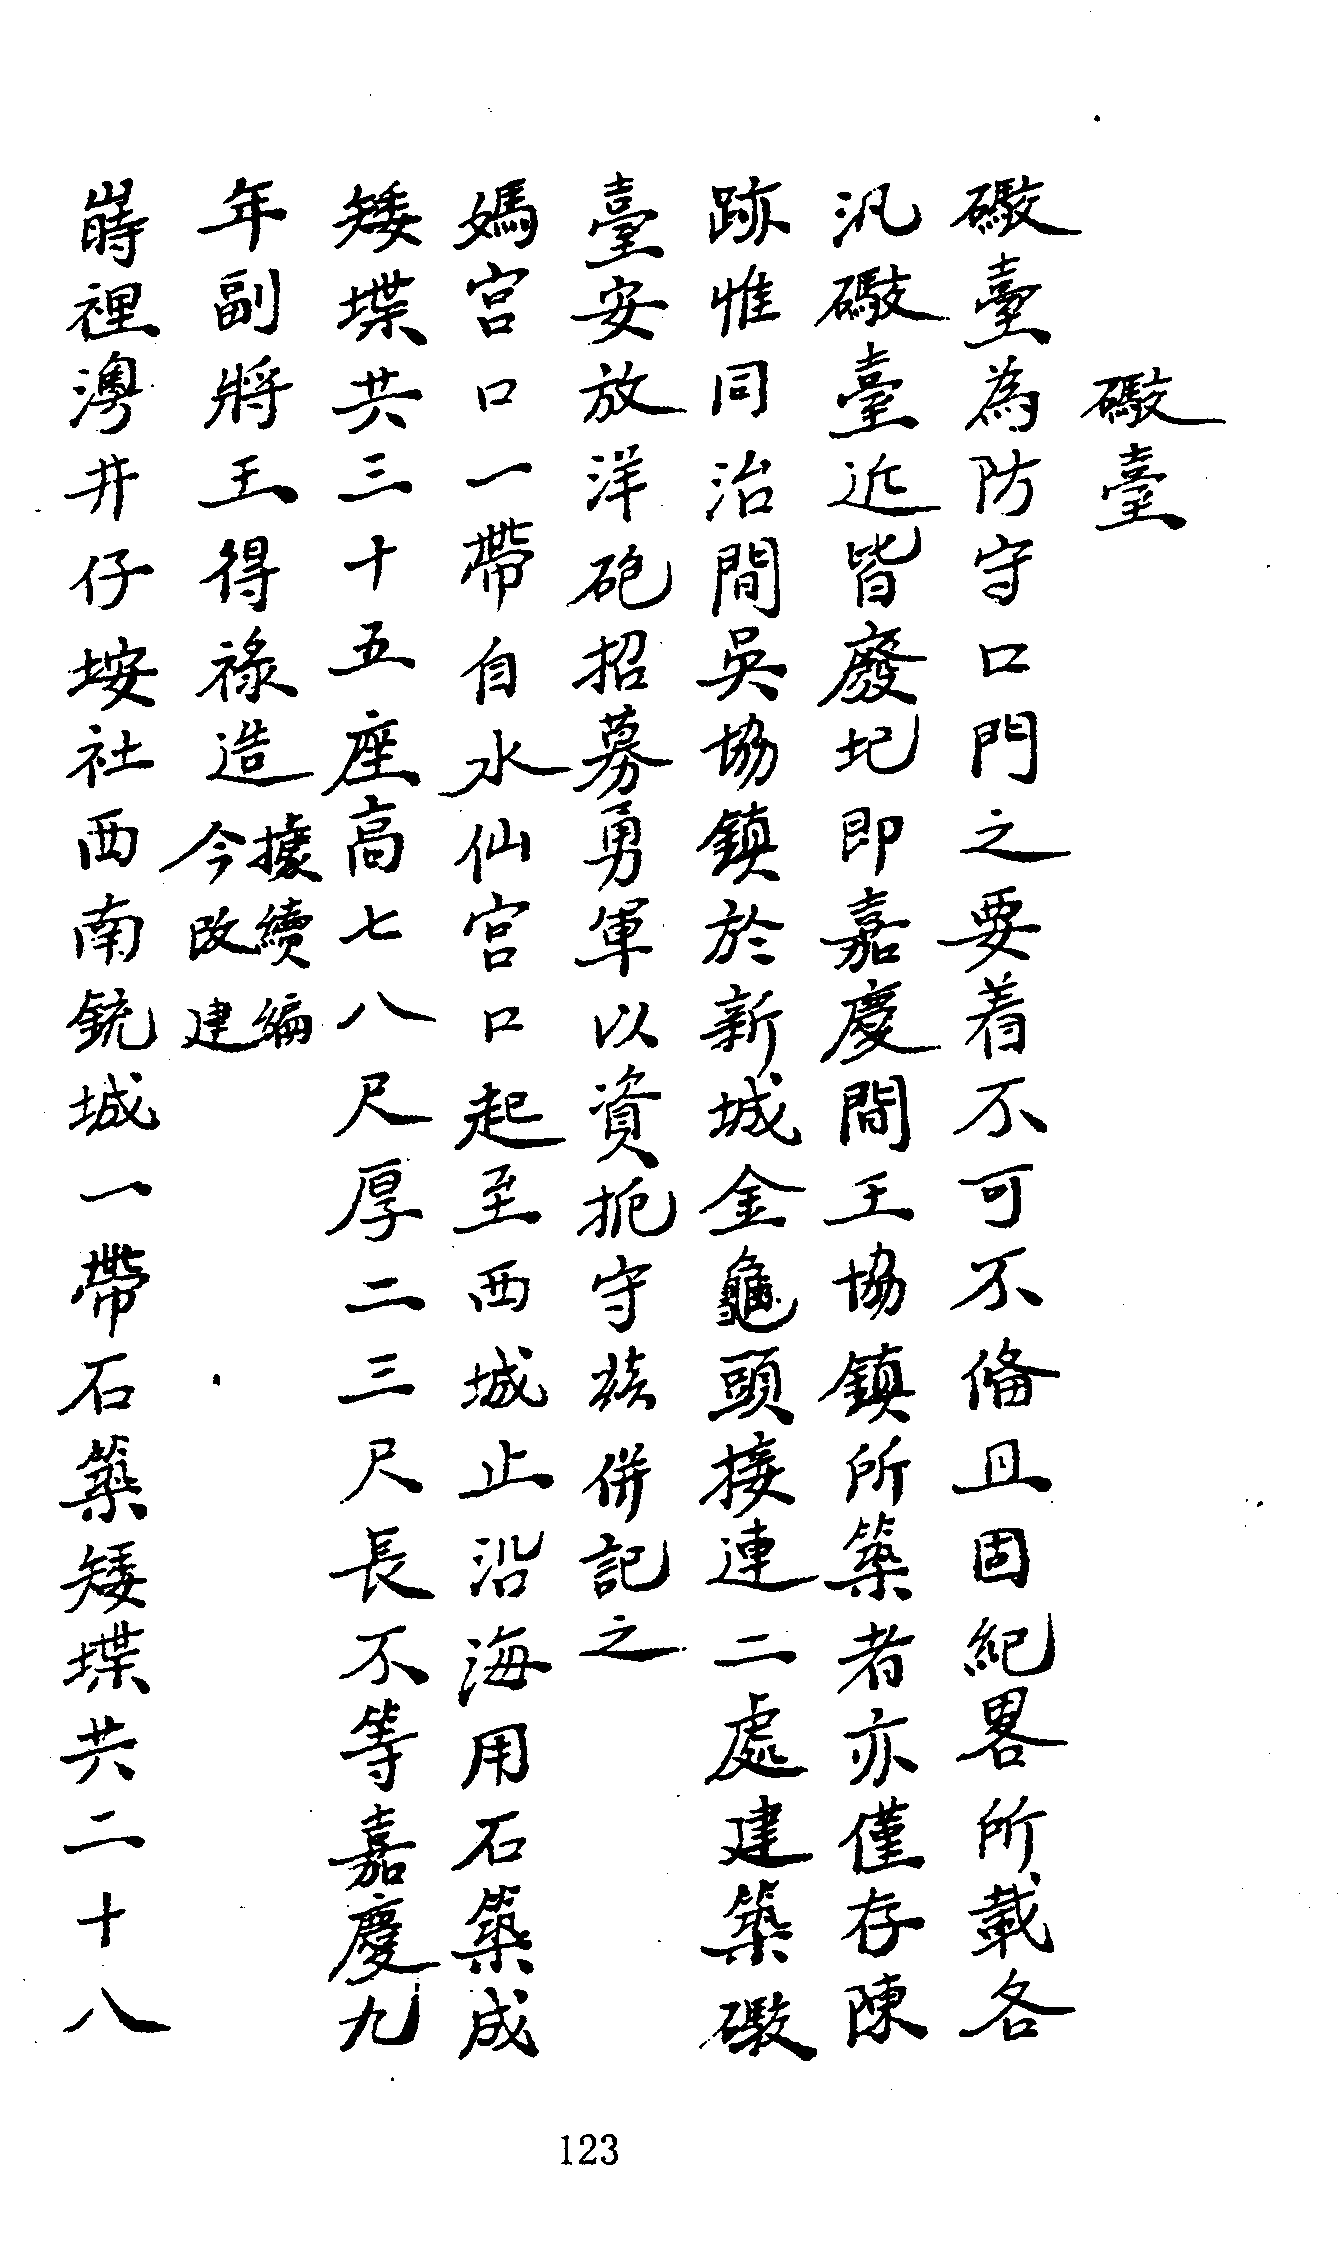 礮臺
礮臺為防守口門之要着不可不俻且固紀畧所載各
汛礮臺近皆廢圮即嘉慶間王協鎮所築者亦僅存陳
跡惟同治間吳協鎮於新城金龜頭接連二處建築礮
臺安放洋砲招募勇軍以資扼守茲併記之
媽宮口一帶自水仙宮口起至西城止沿海用石築成
矮堞共三十五座高七八尺厚二三尺長不等嘉慶九
年副將王得祿造據續編今改建
嵵裡澳井仔垵社西南銃城一帶石築矮堞共二十八
123